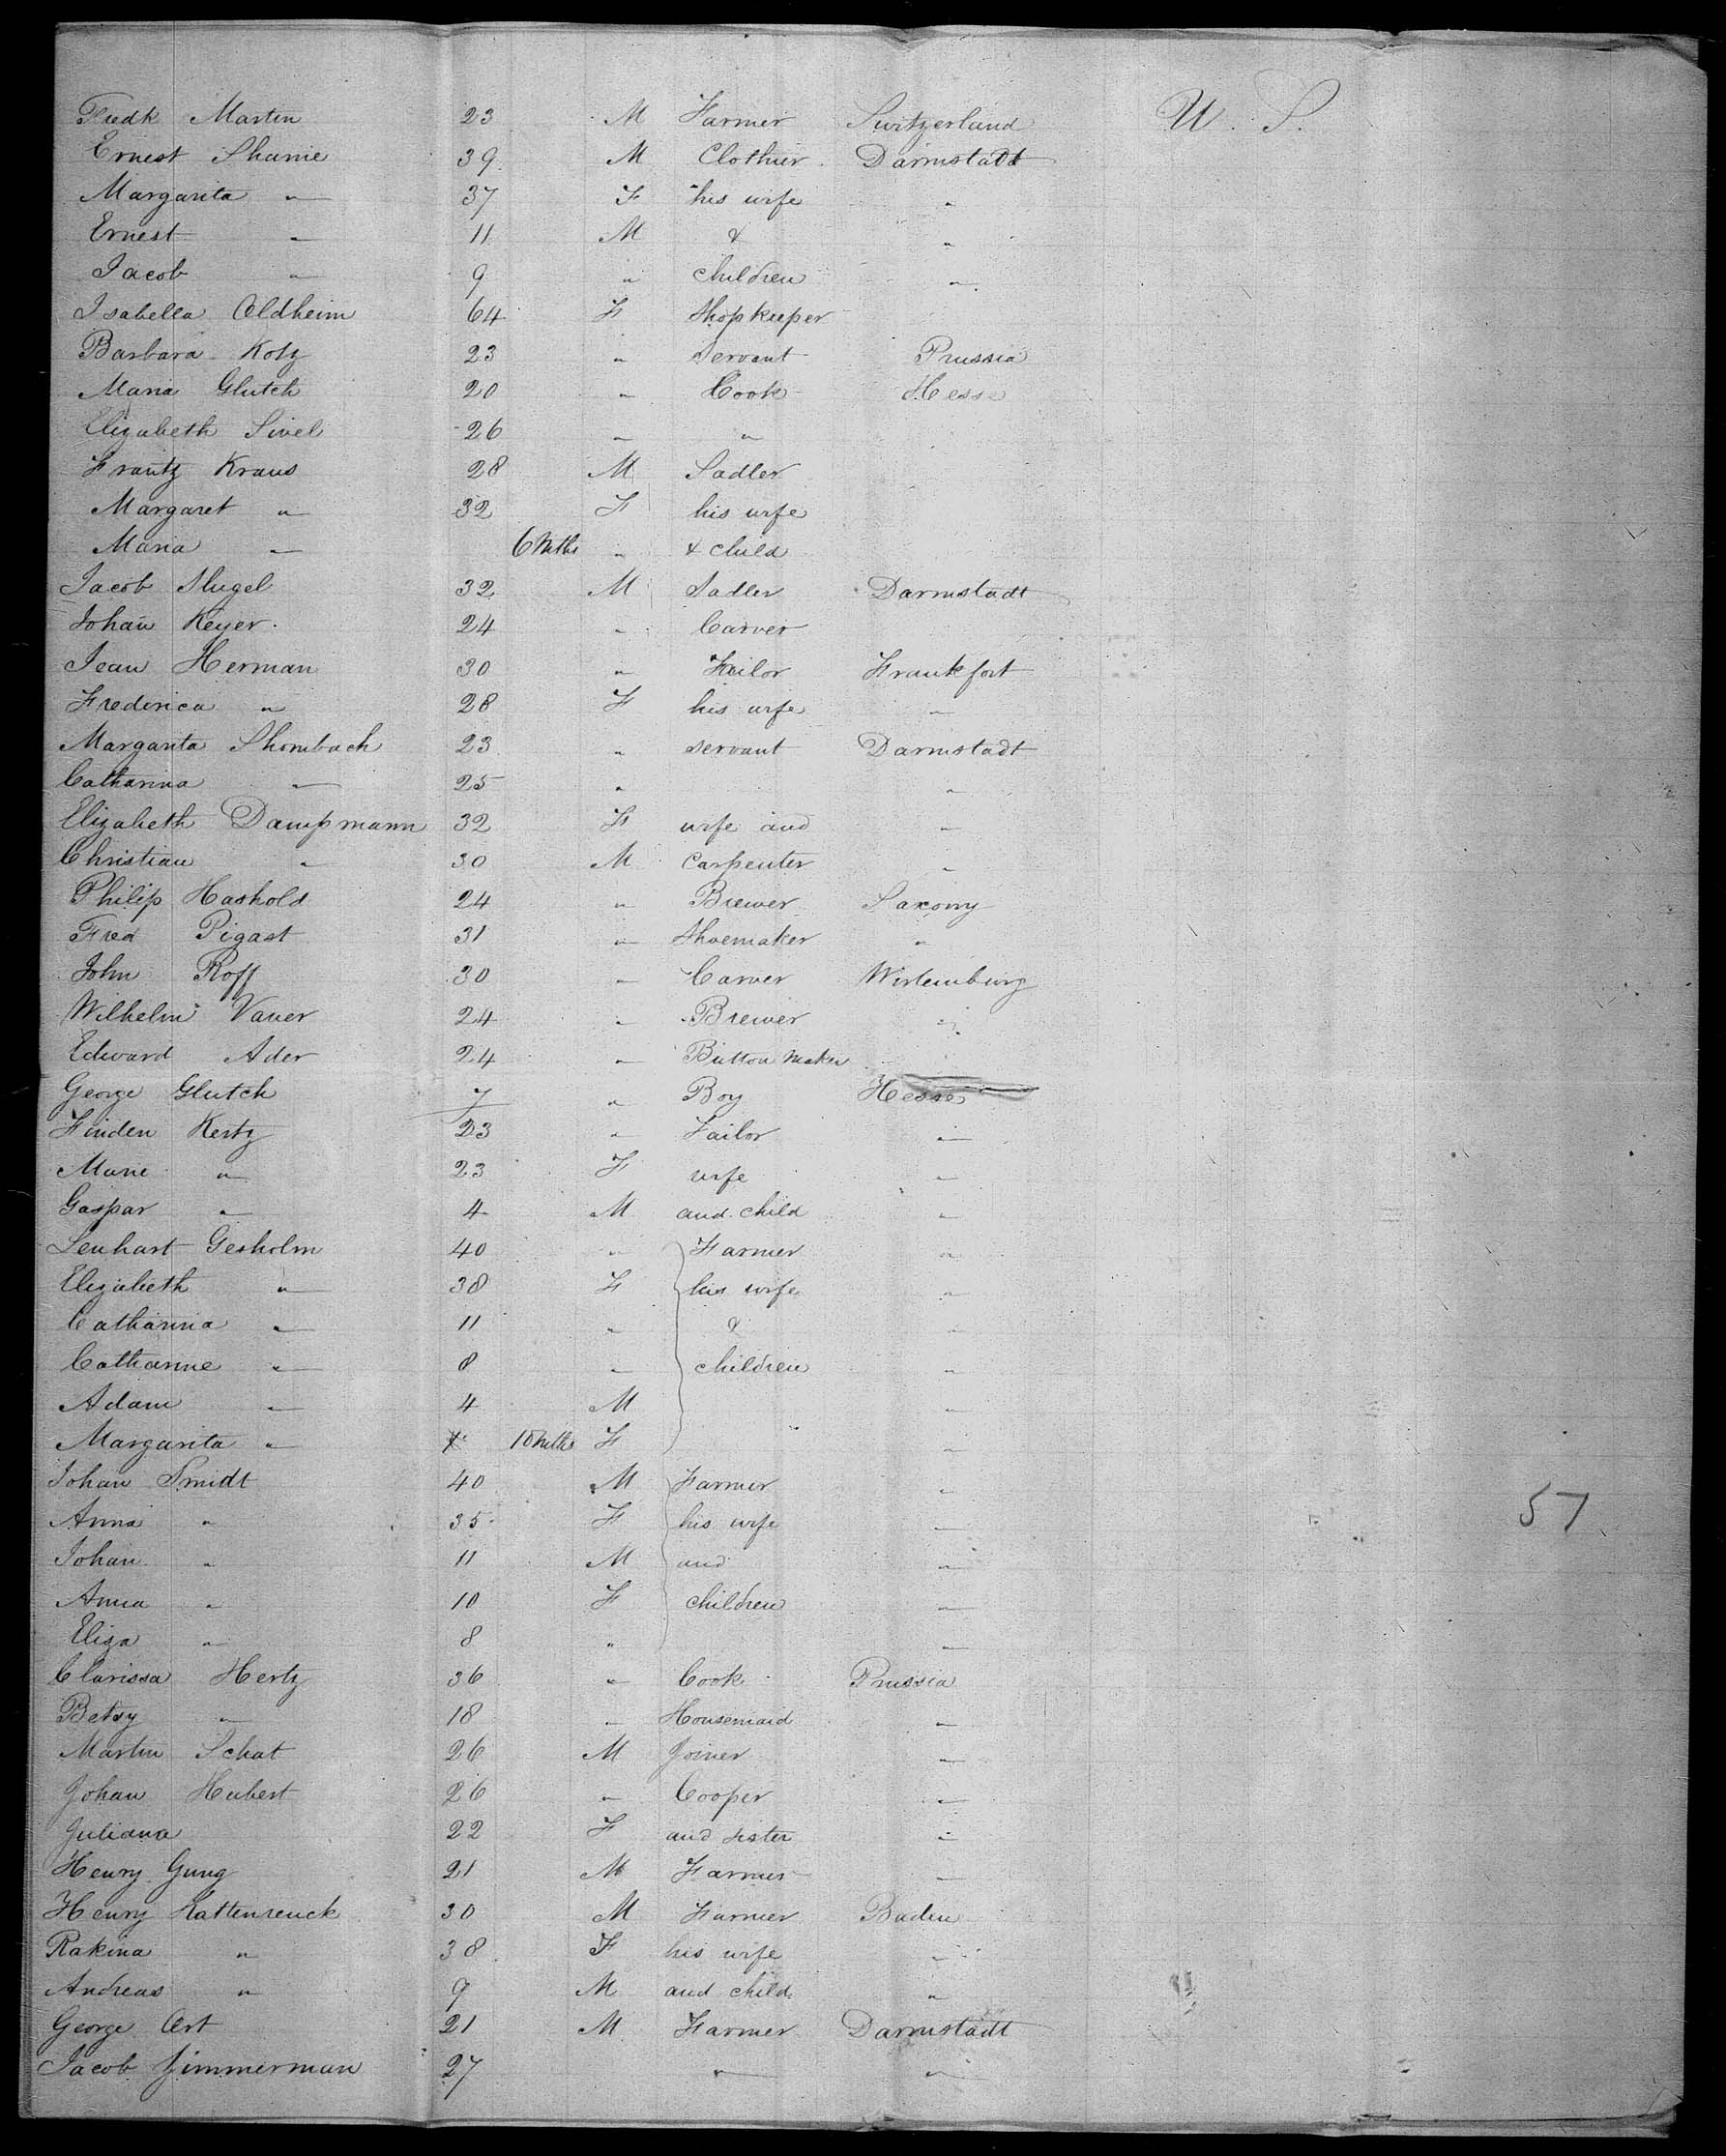 Fredk Martin 23 M Farmer Switzerland U. S.
Ernest Shanie 39 M Clothier Darmstadt
Margarita " 37 F his wife "
Ernest " 11 M & "
Jacob " 9 " Children "
Isabella Oldheim 64 F Shopkeeper
Barbara Kotz 23 " Servant Prussia
Maria Glutch 20 " Cook Hesse
Elizabeth Sivel 26 " "
Frantz Kraus 28 M Sadler
Margaret " 32 F his wife
Maria " 6 Mths " & child
Jacob Slugel 32 M Sadler Darmstadt
Johan Keyer 24 " Carver
Jean Herman 30 " Tailor Frankfort
Frederica " 28 F his wife "
Margarita Shombach 23 " servant Darmstadt
Catharina " 25 " "
Elizabeth Dampmann 32 F wife and "
Christian " 30 M Carpenter "
Philip Hashold 24 " Brewer Saxony
Fred Pigast 31 " Shoemaker "
John Roff 30 " Carver Wirtemburg
Wilhelm Vaner 24 " Brewer "
Edward Ader 24 " Button Maker
George Glutch 7 " Boy Hesse
Finden Kertz 23 " Tailor "
Marie " 23 F wife "
Gaspar " 4 M and child "
Lenhart Gesholm 40 " Farmer "
Elizabeth " 38 F his wife "
Catharina " 11 " & "
Catharine " 8 " children "
Adam " 4 M "
Margarita " 10 Mths F "
Johan Smidt 40 M Farmer "
Anna " 35 F his wife " 57
Johan " 11 M and "
Anna " 10 F children "
Eliza " 8 " "
Clarissa Hertz 36 " Cook Prussia
Betsy " 18 " Housemaid "
Martin Schat 26 M Joiner "
Johan Hubert 26 " Cooper "
Juliana 22 F and sister "
Henry Gung 21 M Farmer "
Henry Kattenreuck 30 M Farmer Baden
Rakina " 38 F his wife "
Andreas " 9 M and child "
George Ort 21 M Farmer Darmstadt
Jacob Zimmerman 27 " "